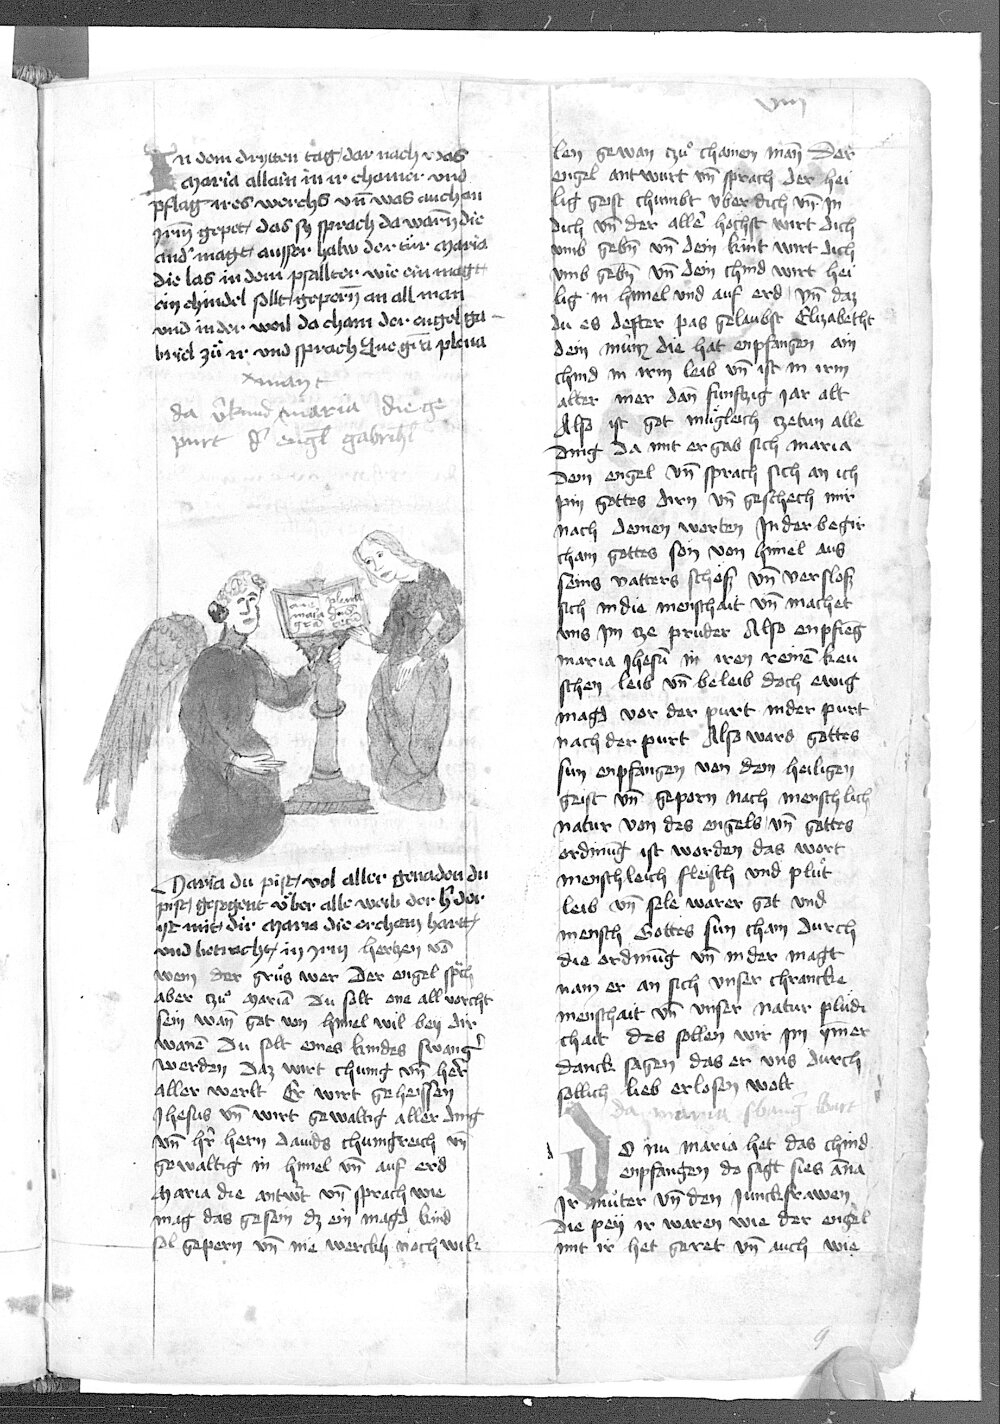 viiij
In dem dritten tag dar nach was
Maria allain in ir chamer und
pflag ires werchs vn̄ was auch an
yrm gepet das sy sprach da warn̄ die
and' magt ausser halb der tür Maria
die las in dem psallter wie ein magt
ein chindel sollt gepern̄ an all man
und in der weil do cham der engel ga
briel zu ir und sprach Aue grā plena
da v'kund maria die ge
purt d' engl gabrihl
aue
maria
gra
plena
Maria du pist vol aller genaden du
pist gesegent vber alle weib der h'r der
ist mit dir Maria die ercham hartt
und betracht in yrm herczen vō
wem der grus wer Der engel sp̄ch
aber czu Mariā Du solt one all vorcht
sein wan̄ got von himel wil bey dir
wanē Du solt eines kindes swang'
werden Daz wirt chunig vn̄ her'
aller werlt Er wirt geheissen
Jhesus vn̄ wirt gewaltig aller ding
vn̄ h'r hern Dauids chunigreich vn̄
gewaltig in himel vn̄ auf erd
Maria die antw't vn̄ sprach wie
mag das gesein dz ein magd kind
sol gepern vn̄ nie werckh noch wil
len gewan czu chainen man̄ Der
engel antwurt vn̄ sprach der hei
lig geist chumbt vber dich vn̄ in
dich vn̄ der aller hochst wirt dich
vmb gebn̄ vn̄ dein kint wirt dich
vmb gebn̄ vn̄ dein chind wirt hei
lig in himel und auf erd vn̄ daz
du es dester pas gelaubst Elizabetht
dein mum̄ die hat enpfangen ain
chind in irm leib vn̄ ist in irm
alter mer dan̄ funfczig iar alt
Also ist got mugleich czetun alle
ding Da mit ergab sich maria
dem engel vn̄ sprach sich an ich
pin gottes dirn vn̄ geschech mir
nach deinen worten In der begir
cham gottes son von himel aus
seins vatters schos vn̄ versloß
sich in die menschait vn̄ machet
vns im cze pruder Also enpfieg
maria Jhesū in iren reinē keu
schen leib vn̄ beleib doch ewig
magd vor der purt in der purt
nach der purt Also wars gottes
sun enpfangen von dem heiligen
geist vn̄ geporn nach menschlich
natur von des engels vn̄ gottes
ordnūg ist worden das wort
menschleich fleisch und plut
leib vn̄ sele warer got und
mensch Gottes sun cham durch
die ordnūg vn̄ in der magt
nam er an sich unser chrancke
menschait vn̄ unser natur plödi
chait des sollen wir im ymer
danck sagen das er vns durch
sollich lieb erlosen wolt
da maria swang' wart
DO nu maria het das chind
enpfangen do sagt sies an̄a
Ir muter vn̄ den Junckfrawen
die pey ir waren wie der engel
mit ir het geret vn̄ auch wie
9